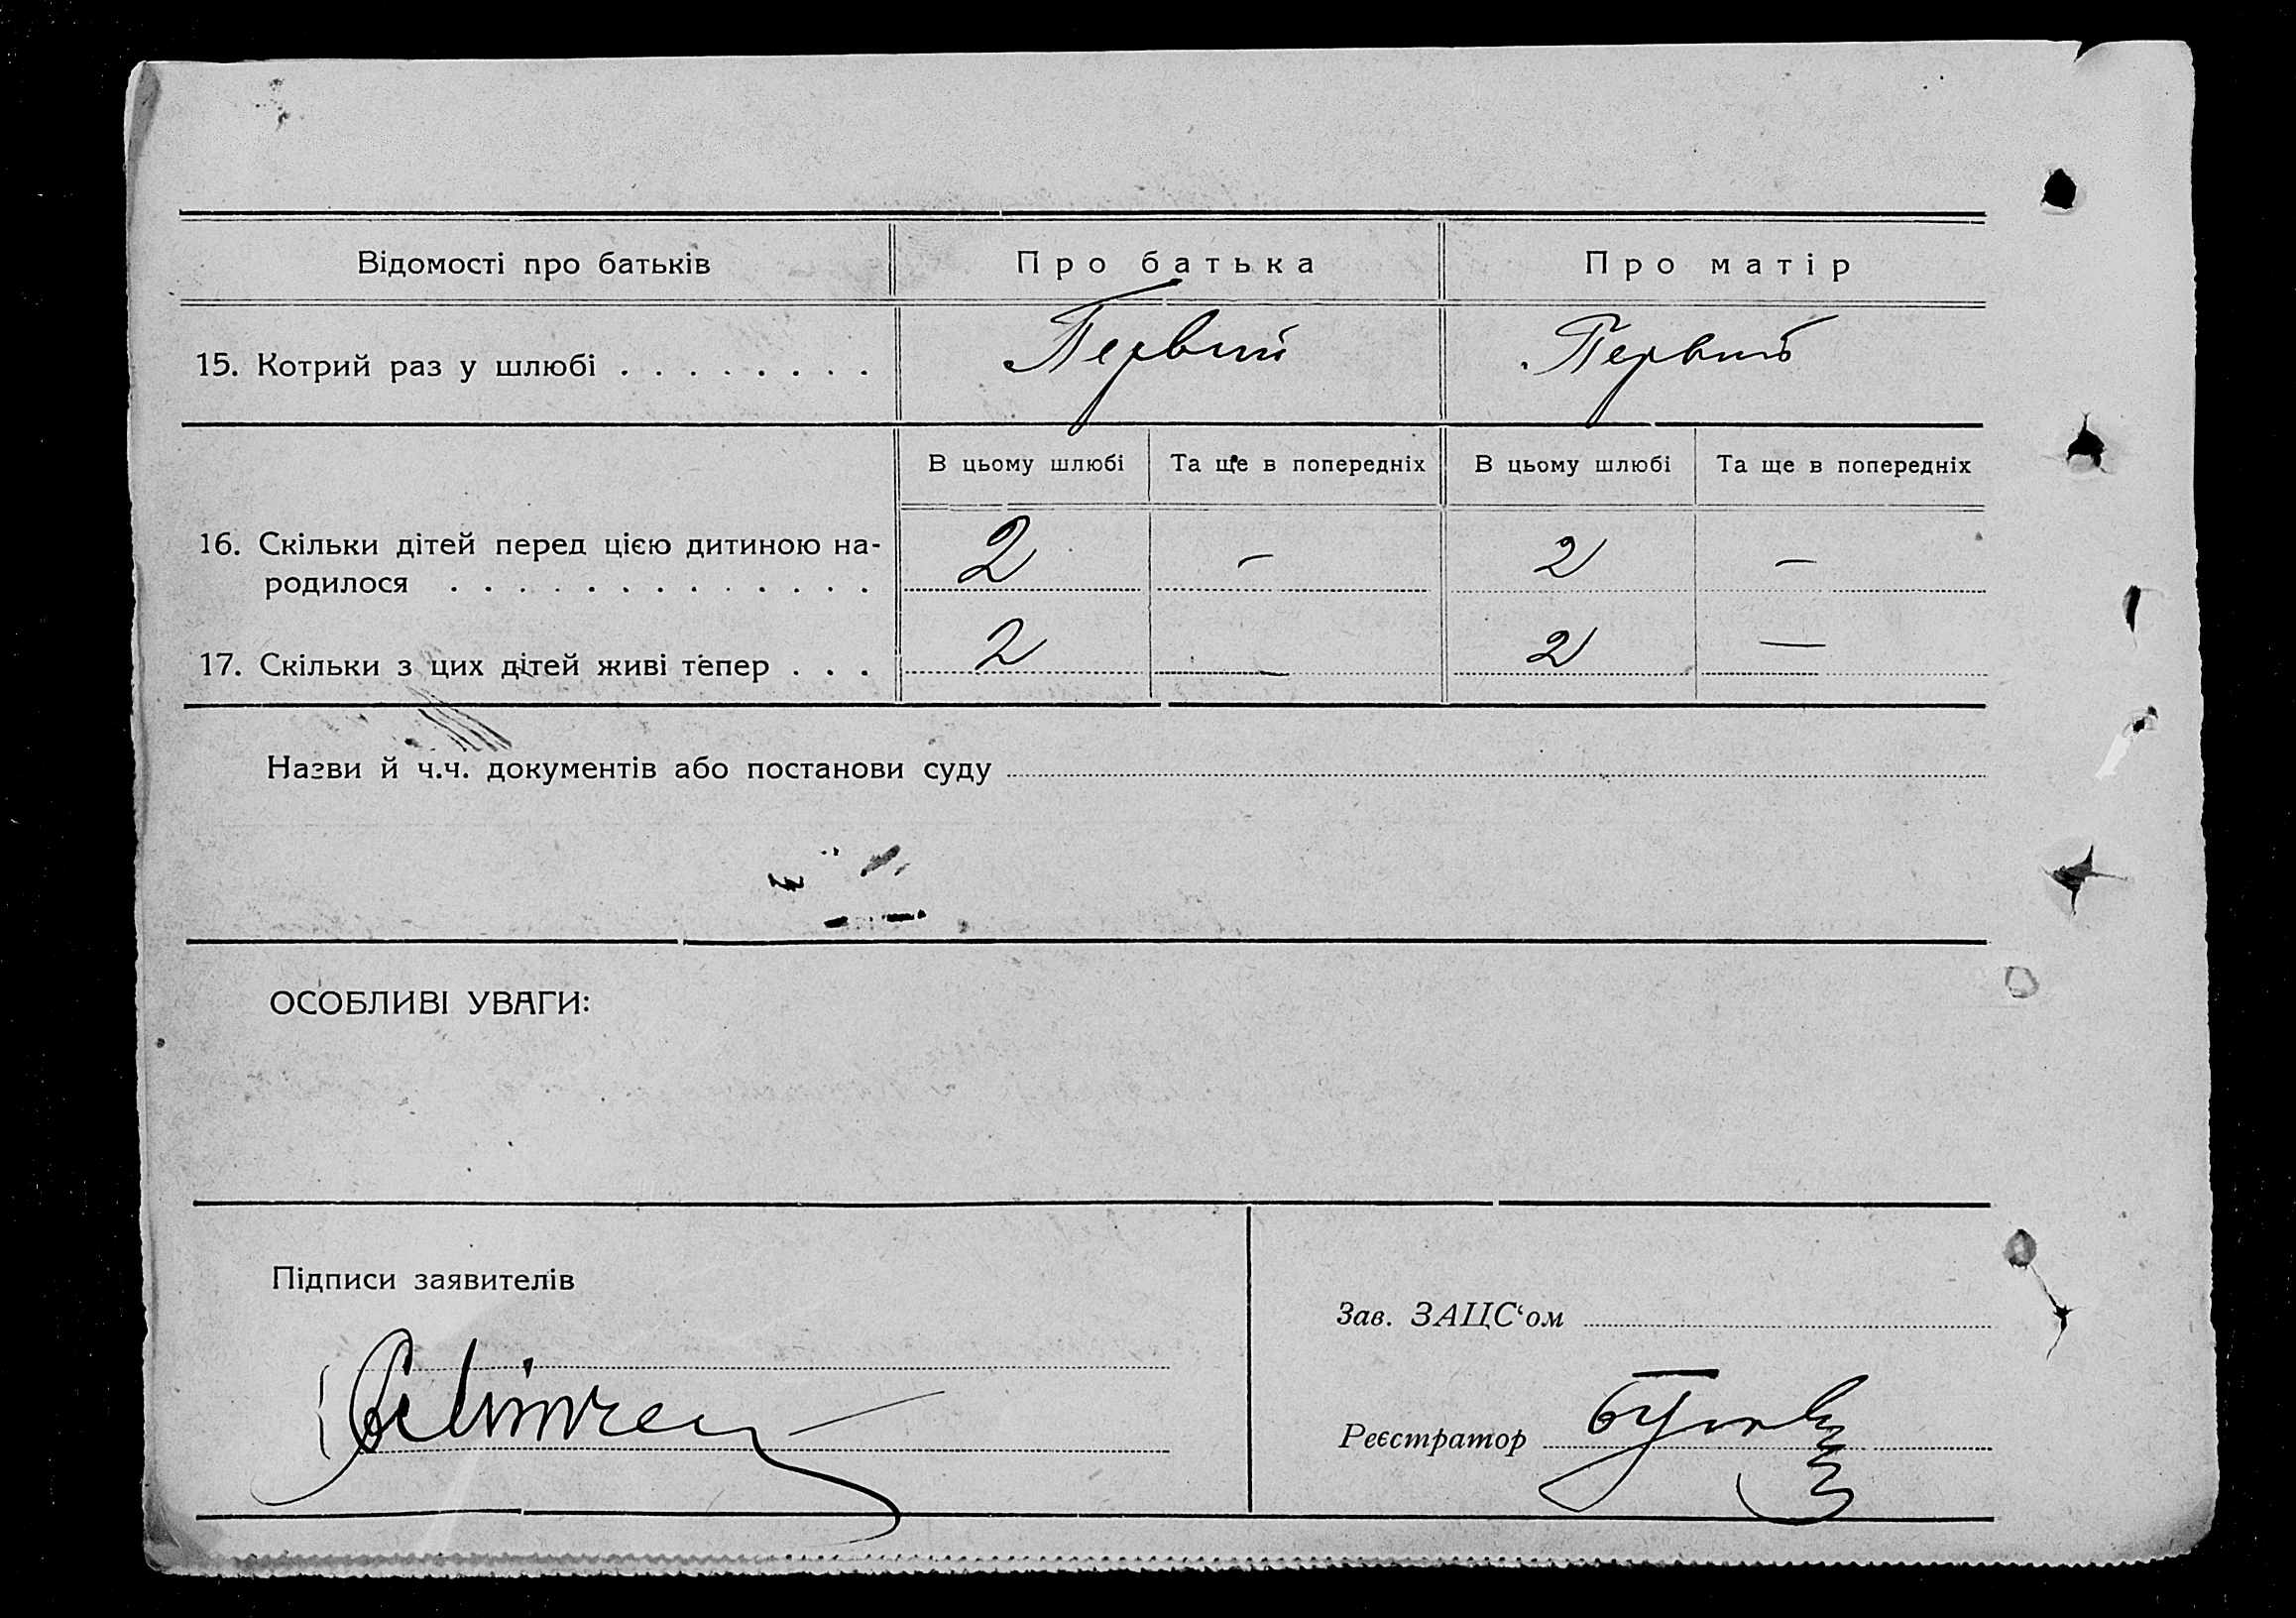 Відомості про батьків Про батька Про матір
15. Котрий раз у шлюбі . . . . . . . . Первий Первий
В цьому шлюбі Та ще в попередніх В цьому шлюбі Та ще в попередніх
16. Скільки дітей перед цією дитиною на- 2 – 2 –
родилося . . . . . . . . . . . . .
17. Скільки з цих дітей живі тепер . . . 2 — 2 —
Назви й ч.ч. документів або постанови суду
ОСОБЛИВІ УВАГИ:
Підписи заявителів
Зав. ЗАЦС‘ом
Реєстратор